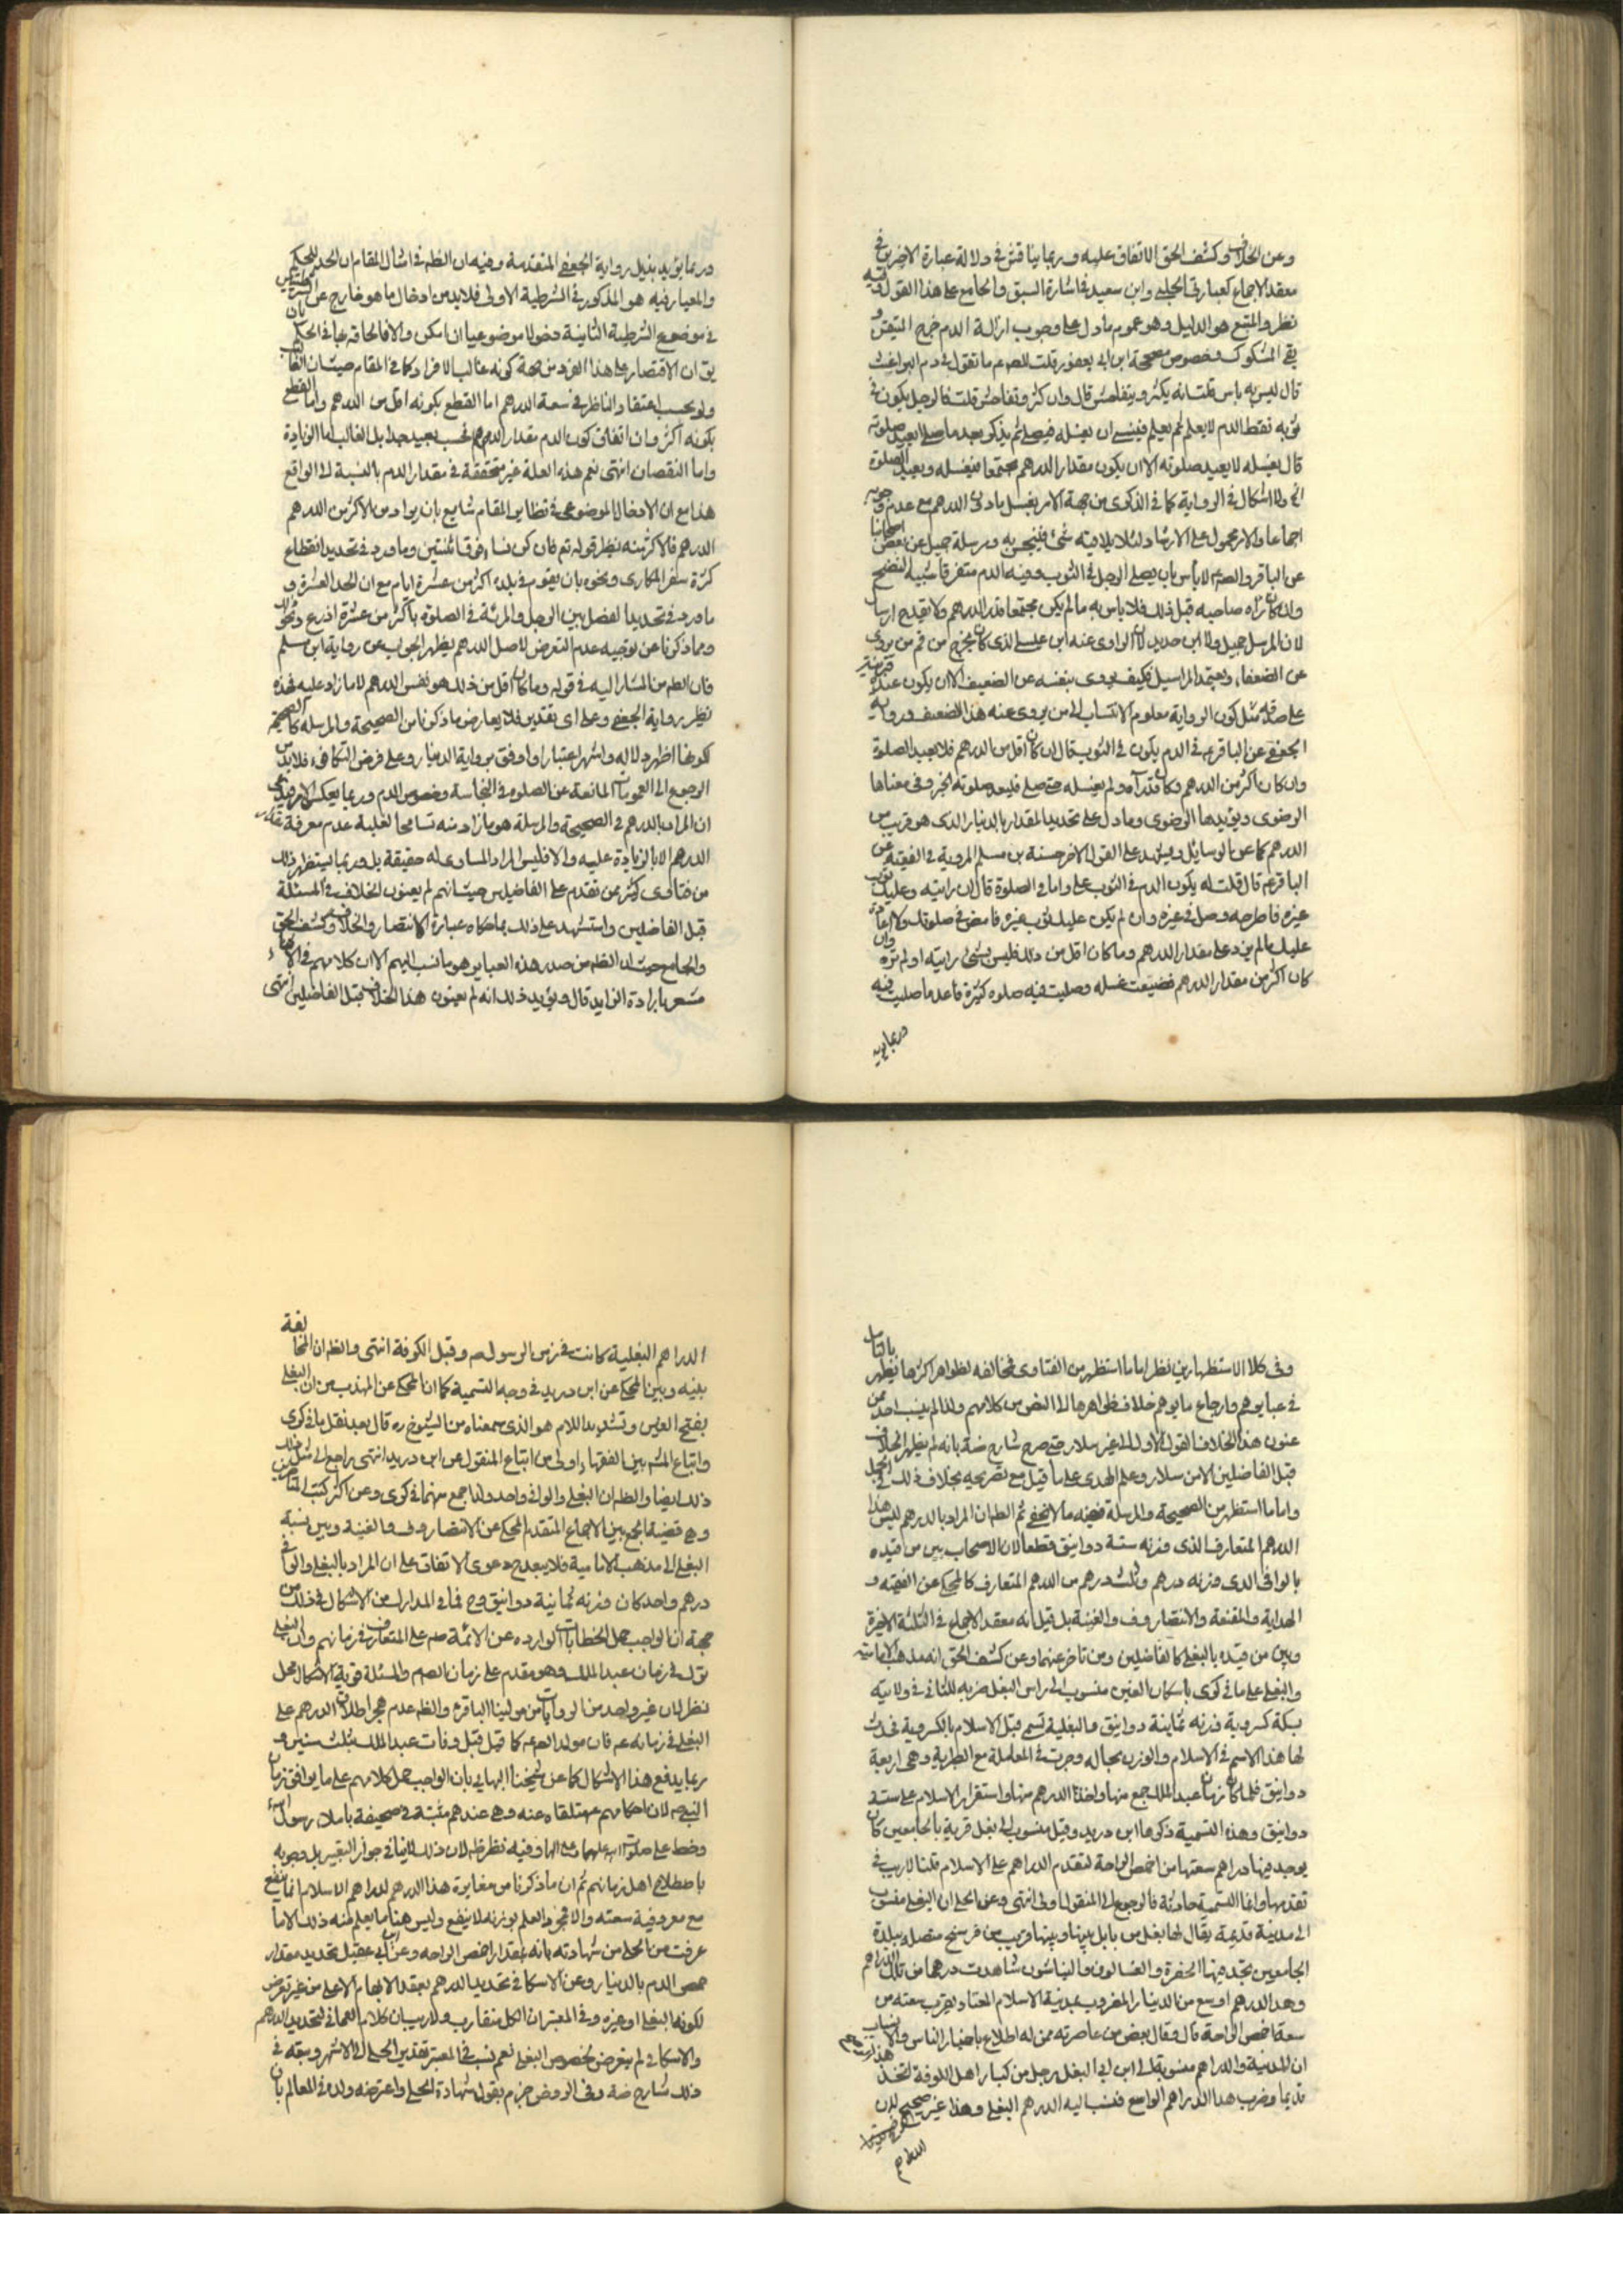 وعن الخلاف وكشف الحق الاتفاق عليه وربما يناقش في دلالة عبارة الاخيرين في
معقد الاجماع كعبارتي الحلي وابن سعيد في اشارة السبق والجامع على هذا القول وفيه
نظر والمتبع هو الدليل وهو عموم ما دل على وجوب ازالة الدم خرج المتيقن و
بقي المشكوك وخصوص صحيحة ابن ابي يعفور قلت للصم ما تقول في دم البراغيث
قال ليس به باس قلت انه يكثر ويتفاحش قال وان كثر وتفاحش قلت فالرجل يكون في
ثوبه نقط الدم لا يعلم ثم يعلم فينسى ان يغسله فيصلي ثم يذكر بعد ما صلى ايعيد صلوته
قال يغسله لا يعيد صلوته الا ان يكون مقدار الدرهم مجتمعا فيغسله ويعيد الصلوة
ولا اشكال في الرواية كما في الذكرى من جهة الامر بغسل ما دون الدرهم مع عدم وجوبه
اجماعا والامر محمول على الارشاد لئلا يلاقيه شئ فينجس به ومرسلة جميل عن بعض اصحابنا
عن الباقر والصم لا باس بان يصلي الرجل في الثوب وفيه الدم متفرقا شبه النضح
وان كان راه صاحبه قبل ذلك فلا باس به ما لم يكن مجتمعا قدر الدرهم ولا يقدح ارسا
لان المرسل جميل ولا ابن حديد لان الراوي عنه ابن عيسى الذي كان يخرج من قم من يروي
عن الضعفاء ويعتمد المراسيل فكيف يروي بنفسه عن الضعيف الا ان يكون عنده قرينة
على صدقه مثل كون الرواية معلوم الانتساب الى من يروي عنه هذا الضعيف ورواية
الجعفي عن الباقر ع في الدم يكون في الثوب قال ان كان اقل من الدرهم فلا يعيد الصلوة
وان كان اكثر من الدرهم وكان قد رآه ولم يغسله حتى صلى فليعد صلوته الخبر وفي معناها
الرضوي ويؤيدها الرضوي وما دل على تحديد المقدار بالدينار الذي هو قريب من
الدرهم كما عن الوسايل ويشهد على القول الاخر حسنة بن مسلم المروية في الفقيه عن
الباقر ع قال قلت له يكون الدم في الثوب علي وانا في الصلوة قال ان رايته وعليك ثوب
غيره فاطرحه وصل في غيره وان لم يكن عليك ثوب غيره فامض في صلوتك ولا اعادة
عليك ما لم يزد على مقدار الدرهم وما كان اقل من ذلك فليس بشئ رايته او لم تره وان
كان اكثر من مقدار الدرهم فضيعت غسله وصليت فيه صلوة كثيرة فاعد ما صليت فيه
وربما يؤيد
وربما يؤيد بذيل رواية الجعفي المتقدمة وفيه ان الظم في امثال المقام ان الحد للحكم
والمعيار فيه هو المذكور في الشرطية الاولى فلا بد من ادخال ما هو خارج عن الشرطيتين
في موضوع الشرطية الثانية دخولا موضوعيا ان امكن والا فالحاقه بها في الحكم بان
يق ان الاقتصار على هذا الفرد من جهة كونه غالب الافراد كما في المقام حيث ان الغالب
ولو بحسب اعتقاد الناظر في سعة الدرهم اما القطع بكونه اقل من الدرهم واما القطع
بكونه اكثر وان اتفاق كون الدم مقدار الدرهم فحسب بعيد جدا بل الغالب اما الزيادة
واما النقصان انتهى نعم هذه العلة غير متحققة في مقدار الدم بالنسبة الى الواقع
هذا مع ان الادخال الموضوعي في نظاير المقام شايع بان يراد من الاكثر من الدرهم
الدرهم فالاكثر منه نظير قوله تع فان كن نساء فوق اثنتين وما ورد في تحديد انقطاع
كثرة سفر المكاري ونحوه بان يقيم في بلده اكثر من عشرة ايام مع ان الحد العشرة و
ما ورد في تحديد الفصل بين الرجل والمرئة في الصلوة باكثر من عشرة اذرع ونحو ذلك
ومما ذكرنا من توجيه عدم التعرض لاصل الدرهم يظهر الجواب عن رواية ابن مسلم
فان الظم من المشار اليه في قوله وما كان اقل من ذلك هو نفس الدرهم لا ما زاد عليه فهذه
نظير رواية الجعفي وعلى اي تقدير فلا يعارض ما ذكرنا من الصحيحة والمرسلة كالصحيحة
لكونها اظهر دلالة واشهر اعتبارا واوفق برواية الدينار وعلى فرض التكافؤ فلا بد من
الرجوع الى العمومات المانعة عن الصلوة في النجاسة وخصوص الدم وربما يعكس الامر فيدعى
ان المراد بالدرهم في الصحيحة والمرسلة هو ما زاد منه تسامحا لغلبة عدم معرفة مقدار
الدرهم الا بالزيادة عليه والا فليس المراد المساوي له حقيقة بل وربما يستظهر ذلك
من فتاوى كثير ممن تقدم على الفاضلين حيث انهم لم يعنون الخلاف في المسئلة
قبل الفاضلين واستشهد على ذلك بما حكاه عبارة الانتصار والخلاف وكشف الحق
والجامع حيث ان الظم من صدر هذه العباير هو ما نسب اليهم الا ان كلامهم في الاثناء
مشعر بارادة الزايد قال ويؤيد ذلك انه لم يعنون هذا الخلاف قبل الفاضلين انتهى
وفي كلا الاستظهارين نظر اما ما استظهر من الفتاوى فمخالفه لظواهر اكثرها يظهر بالتامل
في عبايرهم وارجاع ما يوهم خلاف ظواهرها الى النص من كلامهم ولذا لم ينسب احد ممن
عنون هذا الخلاف القول الاول الى غير سلار حتى صرح شارح ضة بانه لم يظهر الخلاف
قبل الفاضلين الا من سلار وعلم الهدى على ما قيل مع تصريحه بخلاف ذلك في الجمل
واما ما استظهر من الصحيحة والمرسلة ففيه ما لا يخفى ثم الظم ان المراد بالدرهم ليس هذا
الدرهم المتعارف الذي وزنه ستة دوانيق قطعا لان الاصحاب بين من قيده
بالوافي الذي وزنه درهم وثلث درهم من الدرهم المتعارف كالمحكي عن الفقيه و
الهداية والمقنعة والانتصار وف والغنية بل قيل انه معقد الاجماع في الثلثة الاخيرة
وبين من قيده بالبغلي كالفاضلين ومن تاخر عنهما وعن كشف الحق انه مذهب الامامية
والبغلي على ما في كرى باسكان الغين منسوب الى راس البغل ضربه للثاني في ولايته
بسكة كسروية وزنه ثمانية دوانيق والبغلية تسمى قبل الاسلام بالكسروية فحدث
لها هذا الاسم في الاسلام والوزن بحاله وجرت في المعاملة مع الطبرية وهي اربعة
دوانيق فلما كان زمان عبد الملك جمع منهما واخذ الدرهم منهما واستقر امر الاسلام على ستة
دوانيق وهذه التسمية ذكرها ابن دريد وقيل منسوب الى بغل قرية بالجامعين كان
يوجد فيها دراهم سعتها من اخمص الراحة لتقدم الدراهم على الاسلام قلنا لا ريب في
تقدمها وانما التسمية حادثة فالرجوع الى المنقول اولى انتهى وعن الحلي ان البغلي منسوب
الى مدينة قديمة يقال لها بغل من بابل بينها وبينها قريب من فرسخ متصله ببلدة
الجامعين تجد فيها الحفرة والغسالون والنباشون شاهدت درهما من تلك الدراهم
وهذا الدرهم اوسع من الدينار المضروب بمدينة الاسلام المعتاد يقرب سعته من
سعة اخمص الراحة قال وقال بعض من عاصرته ممن له اطلاع باخبار الناس والانساب
ان المدينة والدراهم منسوبة الى ابن ابي البغل رجل من كبار اهل الكوفة اتخذ هذا الموضع
قديما وضرب هذا الدراهم الواسع فنسب اليه الدرهم البغلي وهذا غير صحيح لان
الدراهم
الدراهم البغلية كانت في زمن الرسول ص وقبل الكوفة انتهى والظم ان المخالفة
بينه وبين المحكي عن ابن دريد في وجه التسمية كما ان المحكي عن المهذب من ان البغلي
بفتح الغين وتشديد اللام هو الذي سمعناه من الشيوخ ره قال بعد نقل ما في كرى
واتباع المشم بين الفقهاء اولى من اتباع المنقول عن ابن دريد انتهى راجع الى مثل ذلك
ذلك ايضا والظم ان البغلي والوافي واحد ولذا جمع بينهما في كرى وعن اكثر كتب المتاخرين
وهو قضية الجمع بين الاجماع المتقدم المحكي عن الانتصار وف والغنية وبين نسبة
البغلي الى مذهب الامامية فلا يبعد ح دعوى الاتفاق على ان المراد بالبغلي والوافي
درهم واحد كان وزنه ثمانية دوانيق وح فما في المدارك من الاشكال في ذلك من
جهة ان الواجب حمل الخطابات الواردة عن الائمة ص على المتعارف في زمانهم وان البغلي
ترك في زمان عبد الملك وهو مقدم على زمان الصم والمسئلة قوية الاشكال محل
نظر لان غير واحد من الروايات من مولينا الباقر ع والظم عدم هجر اطلاق الدرهم على
البغلي في زمانه عم فان مولد الصم ع كما قيل قبل وفات عبد الملك بثلث سنين و
ربما يدفع هذا الاشكال كما عن شيخنا البهايي بان الواجب حمل كلامهم على ما يوافق زمان
النبي ص لان احكامهم متلقاة عنه وهي عندهم مثبتة في صحيفة باملاء رسول الله
وخط على صلوات الله عليهما وآلهما وفيه نظر ظم لان ذلك لا ينافي جواز التعبير بل وجوبه
باصطلاح اهل زمانهم ثم ان ما ذكرنا من مغايرة هذا الدرهم لدراهم الاسلام انما ينفع
مع معروفية سعته والا فمجرد العلم بوزنه لا ينفع وليس هنا ما يعلم منه ذلك الا ما
عرفت من الحلي من شهادته بانه بقدر اخمص الراحة وعن ابن ابي عقيل تحديد مقدار
الدم بالدينار وعن الاسكافي تحديد الدرهم بعقد الابهام الاعلى من غير تعرض
لكونه البغلي او غيره وفي المعتبر ان الكل متقارب ولا ريب ان كلام العماني لتحديد الدرهم
والاسكافي لم يتعرض لخصوص البغلي نعم نسب في المعتبر تقدير الحلي الى الاشهر وتبعه في
ذلك شارح ضة وفي الروض جزم بقبول شهادة الحلي واعترضه ولده في المعالم بان